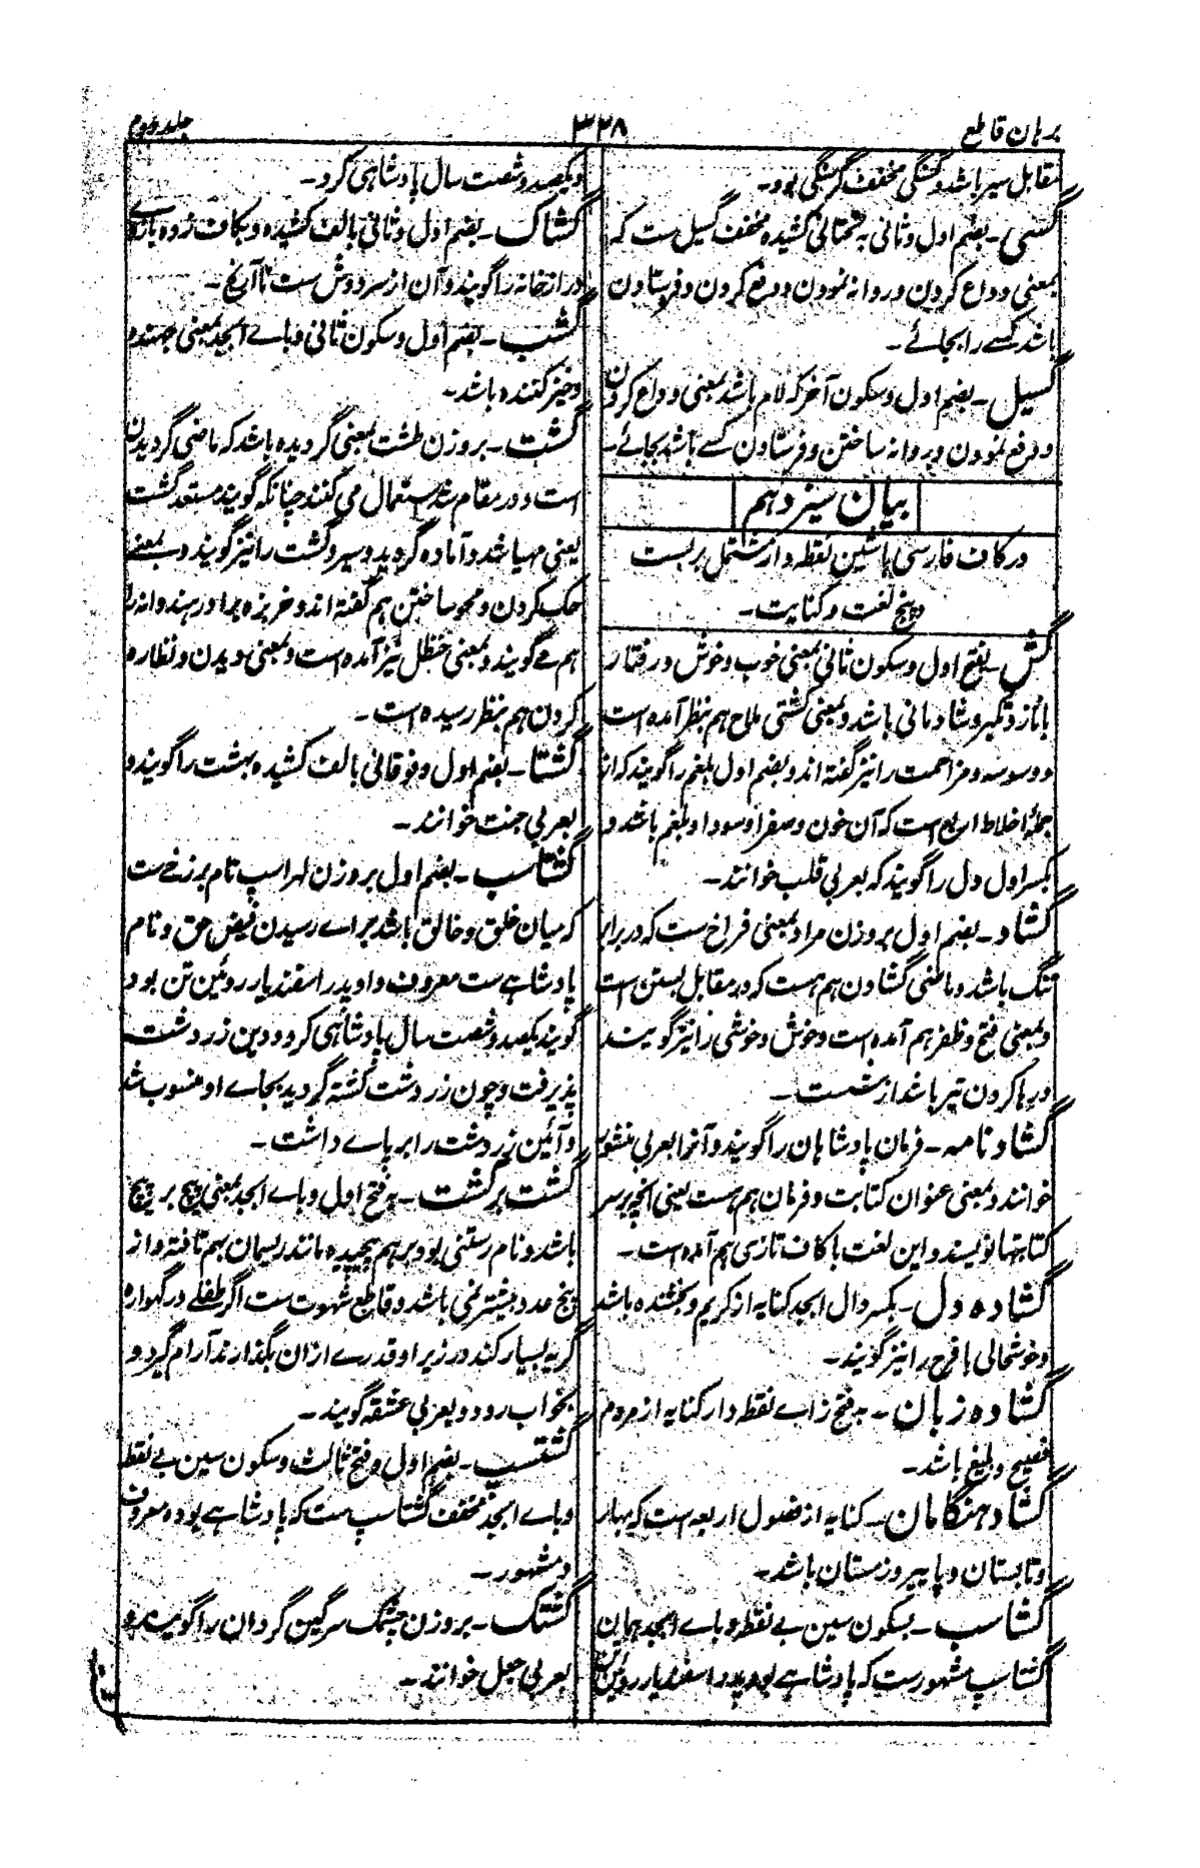 برهان قاطع
۳۲۸
جلد دوم
مقابل سیر باشد و گسنگی مخفف گرسنگی بود۔
گسی۔ بضم اول و ثانی به تحتانی کشیده مخفف گسیل ست که
بمعنی وداع کردن و روانه نمودن و دفع کردن و فرستادن
باشد کسے را بجائے۔
گسیل۔ بضم اول و سکون آخر که لام باشد بمعنی وداع کردن
و دفع نمودن و روانه ساختن و فرستادن کسے باشد بجائے۔
بیان سیزدهم
در کاف فارسی با شین نقطه دار مشتمل بر بست
و پنج لغت و کنایت۔
گش۔ بفتح اول و سکون ثانی بمعنی خوب و خوش و رفتار
با ناز و تکبر و شادمانی باشد و بمعنی کشتی ملاح هم بنظر آمده است
و وسوسه و مزاحمت را نیز گفته اند و بضم اول بلغم را گویند که از
جملهٔ اخلاط اربع است که آن خون و صفرا و سودا و بلغم باشد و
بکسر اول دل را گویند که بعربی قلب خوانند۔
گشاد۔ بضم اول بروزن مراد بمعنی فراخ ست که در برابر
تنگ باشد و ماضی گشادن هم هست که در مقابل بستن است
و بمعنی فتح و ظفر هم آمده است و خوش و خوشی را نیز گویند
و رها کردن تیر باشد از شست۔
گشادنامه۔ فرمان پادشاهان را گویند و آنرا بعربی منشور
خوانند و بمعنی عنوان کتابت و فرمان هم هست یعنی آنچه بر سر
کتابتها نویسند و این لغت با کاف تازی هم آمده است۔
گشاده دل۔ بکسر دال ابجد کنایه از کریم و بخشنده باشد
و خوشحالی با فرح را نیز گویند۔
گشاده زبان۔ به فتح زاے نقطه دار کنایه از مردم
فصیح و بلیغ باشد۔
گشاد هنگامان۔ کنایه از فصول اربعه است که بهار
و تابستان و پاییز و زمستان باشد۔
گشاسب۔ بسکون سین بے نقطه و باے ابجد همان
گشتاسپ مشهورست که پادشاهے بود و پدر اسفندیار روئین تن
و یکصد و شصت سال پادشاهی کرد۔
گشاک۔ بضم اول و ثانی بالف کشیده و بکاف زده بازوے
دراز خانه را گویند و آن از سر دوش ست تا آرنج۔
گشب۔ بضم اول و سکون ثانی و باے ابجد بمعنی جهنده
و خیز کننده باشد۔
گشت۔ بروزن طشت بمعنی گردیده باشد که ماضی گردیدن
است و در مقام شد استعمال می کنند چنانکه گویند مستعد گشت
یعنی مهیا شد و آماده گردید و سیر و گشت را نیز گویند و بمعنی
حک کردن و محو ساختن هم گفته اند و خربزه و هندوانه را
هم مے گویند و بمعنی حنظل نیز آمده است و بمعنی دیدن و نظاره
کردن هم بنظر رسیده است۔
گشتا۔ بضم اول و فوقانی بالف کشیده بهشت را گویند و
بعربی جنت خوانند۔
گشتاسب۔ بضم اول بروزن لهراسپ نام برزخے ست
که میان خلق و خالق باشد براے رسیدن فیض حق و نام
پادشاهے ست معروف و او پدر اسفندیار روئین تن بود
گویند یکصد و شصت سال پادشاهی کرد و دین زردشت
پذیرفت و چون زردشت کشته گردید بجاے او منسوب شد
و آئین زردشت را برپاے داشت۔
گشت برگشت۔ به فتح اول و باے ابجد بمعنی پیچ بر پیچ
باشد و نام رستنی بود بر هم پیچیده مانند ریسمان بهم تافته و از
پنج عدد بیشتر نمی باشد و قاطع شهوت ست اگر طفلے در گهواره
گریه بسیار کند در زیر او قدرے ازان بگذارند آرام گیرد و
بخواب رود و بعربی عشقه گویند۔
گشتسب۔ بضم اول و فتح ثالث و سکون سین بے نقطه
و باے ابجد مخفف گشتاسپ ست که پادشاهے بوده معروف
و مشهور۔
گشتک۔ بروزن چشمک سرگین گردان را گویند و
بعربی جعل خوانند۔